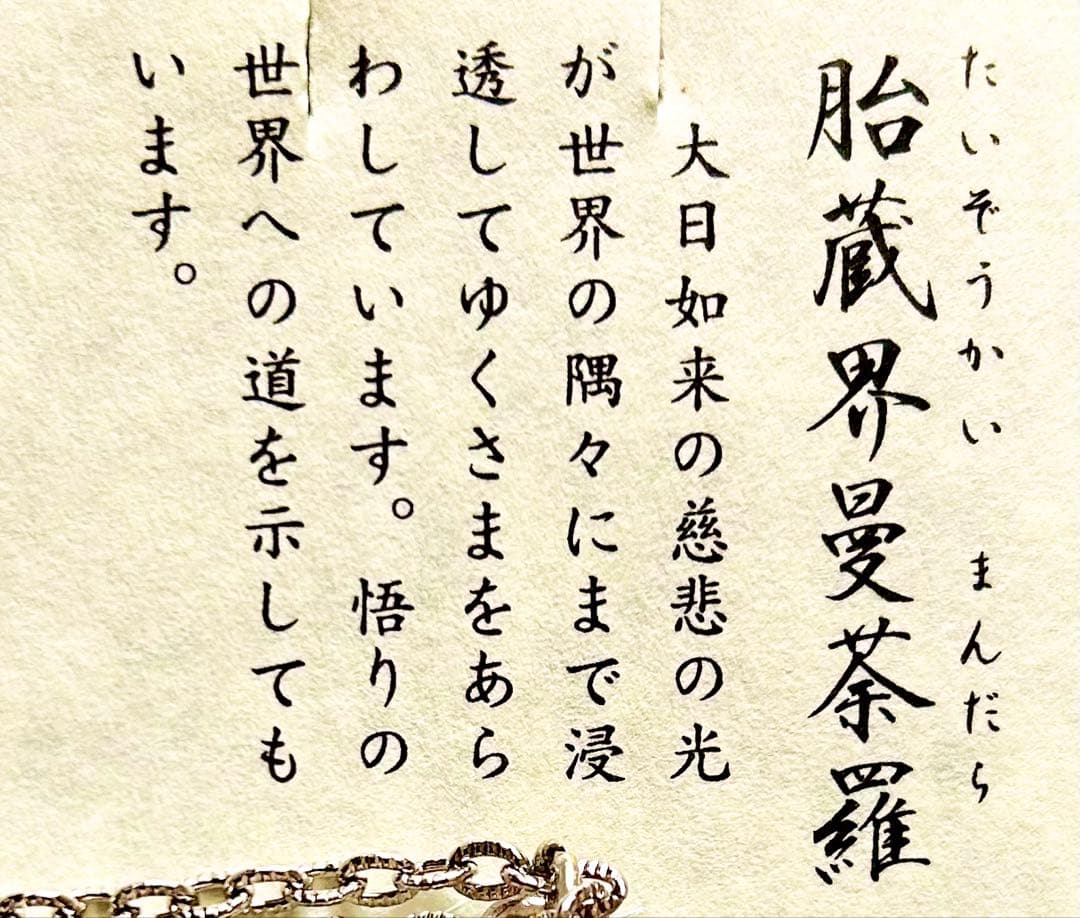 たいぞうかい まんだら
胎蔵界曼荼羅
大日如来の慈悲の光
が世界の隅々にまで浸
透してゆくさまをあら
わしています。悟りの
世界への道を示しても
います。